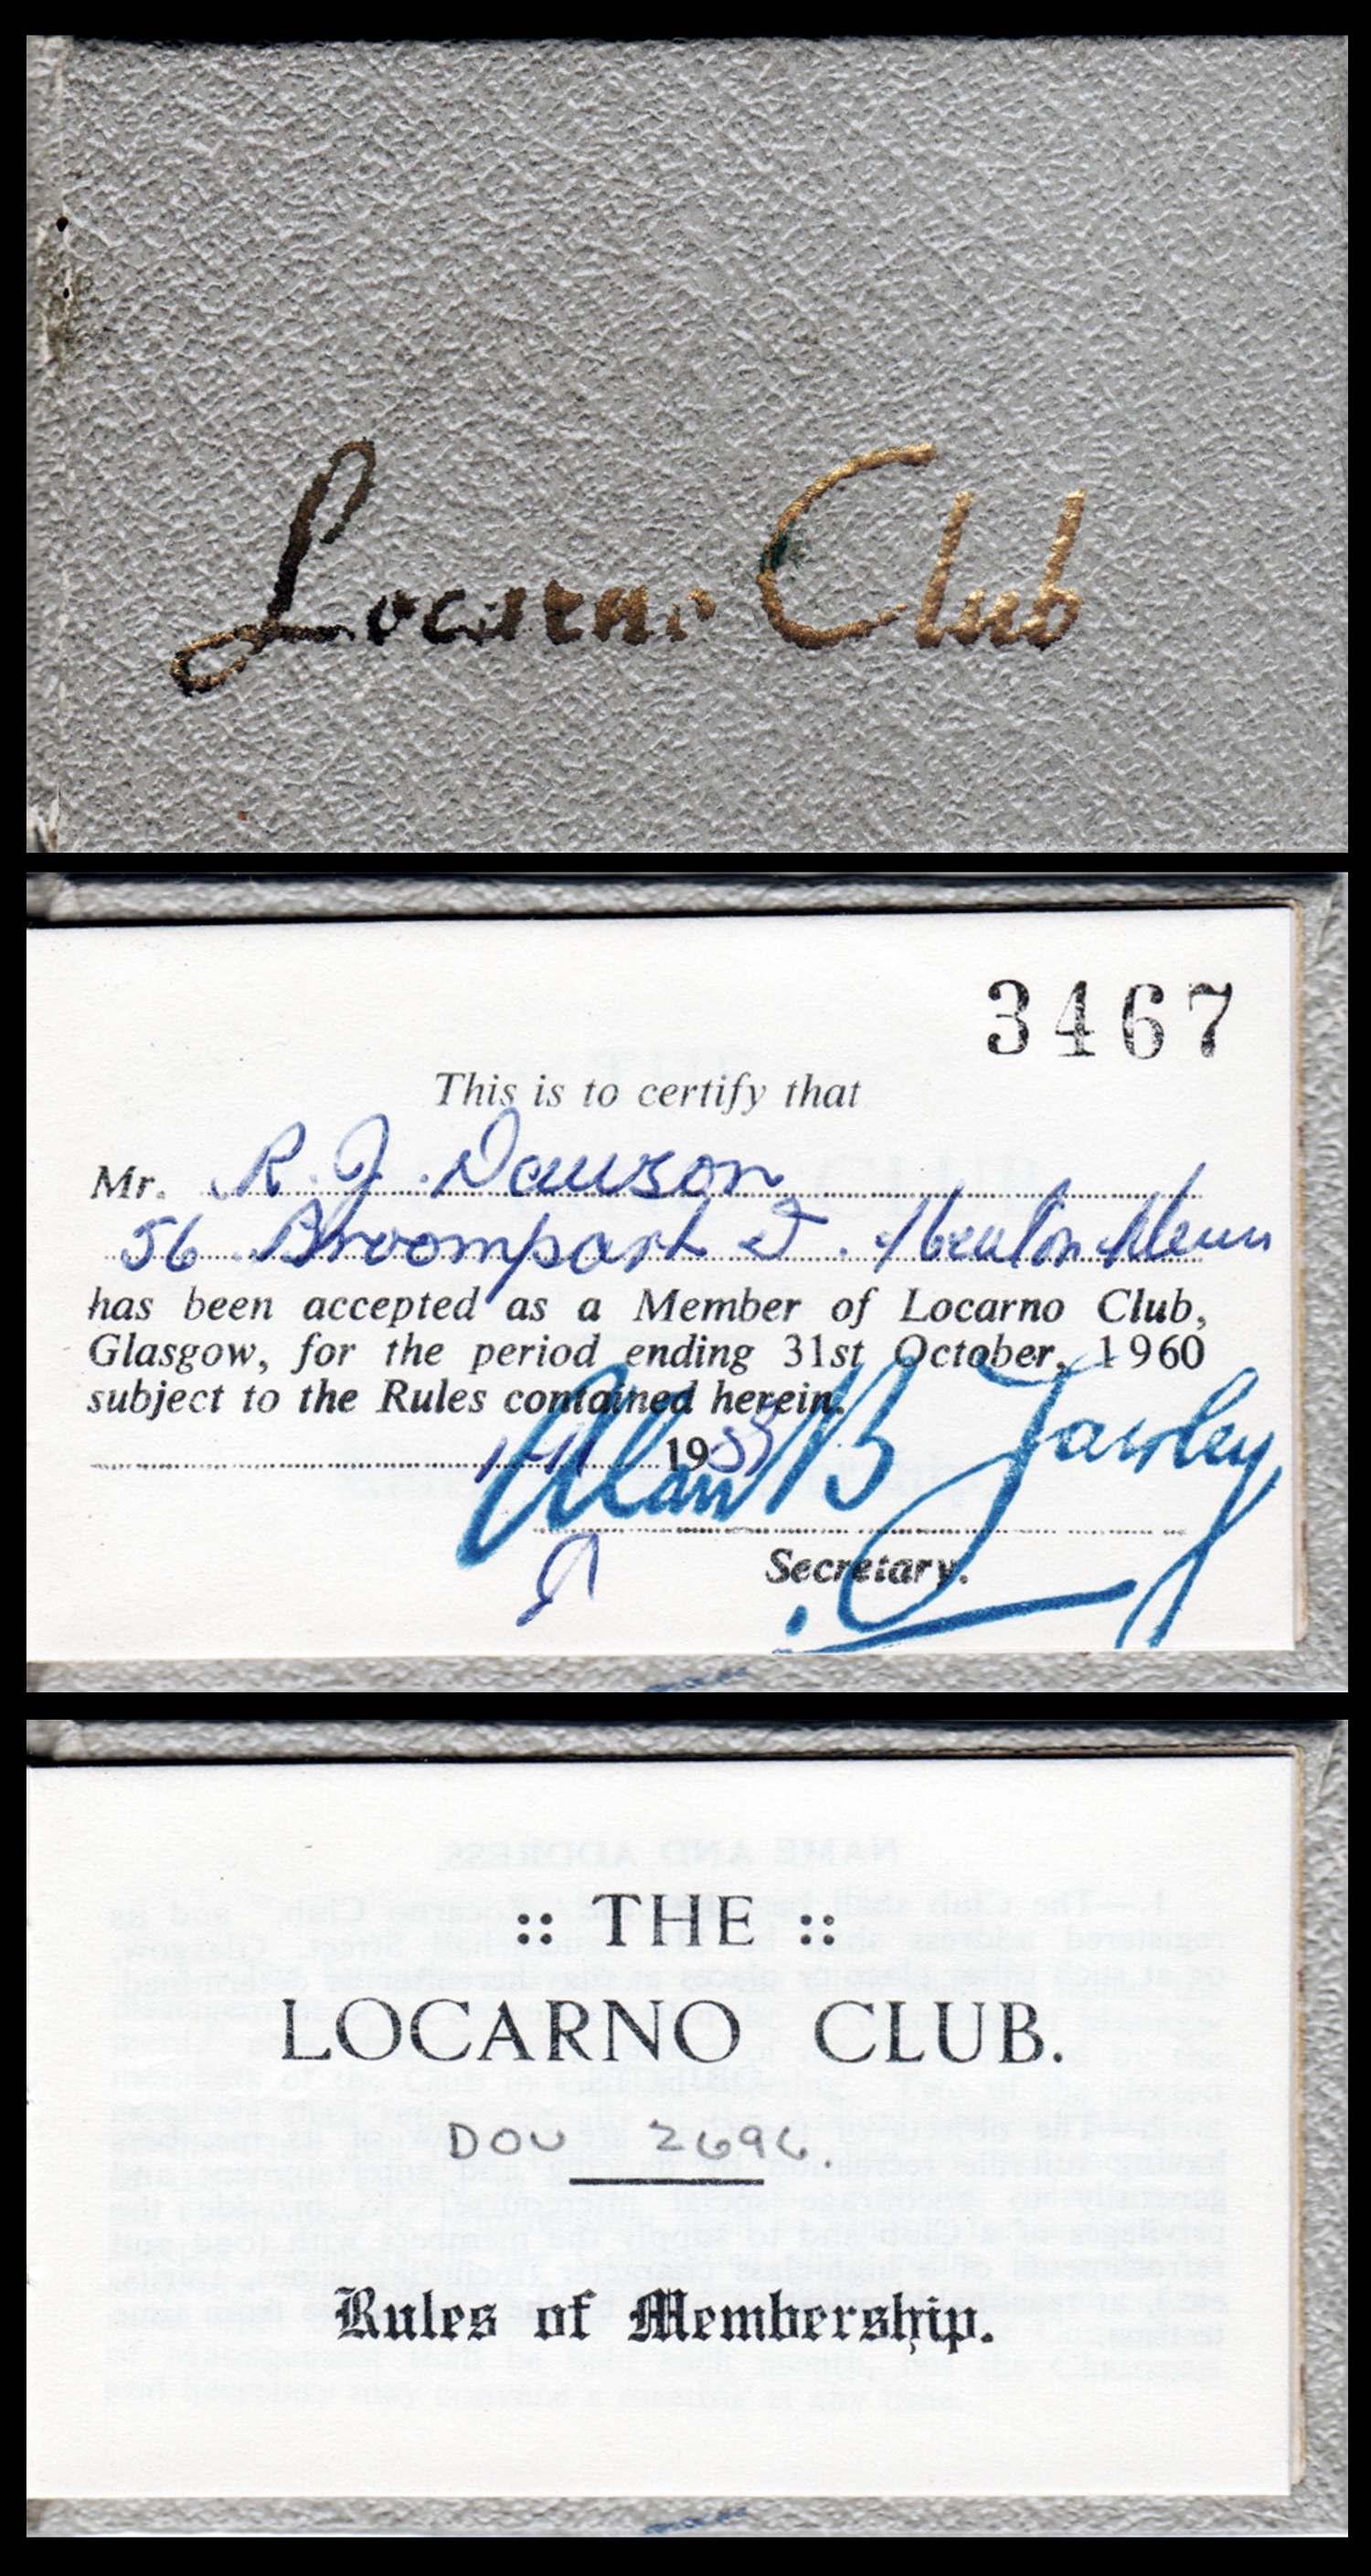 Locarno Club
3467
This is to certify that
Mr. R. J. Dawson
56 Broompark D. Newton Mearns
has been accepted as a Member of Locarno Club,
Glasgow, for the period ending 31st October, 1960
subject to the Rules contained herein.
1959
Alan B
Secretary.
:: THE ::
LOCARNO CLUB.
DOU 2696.
Rules of Membership.